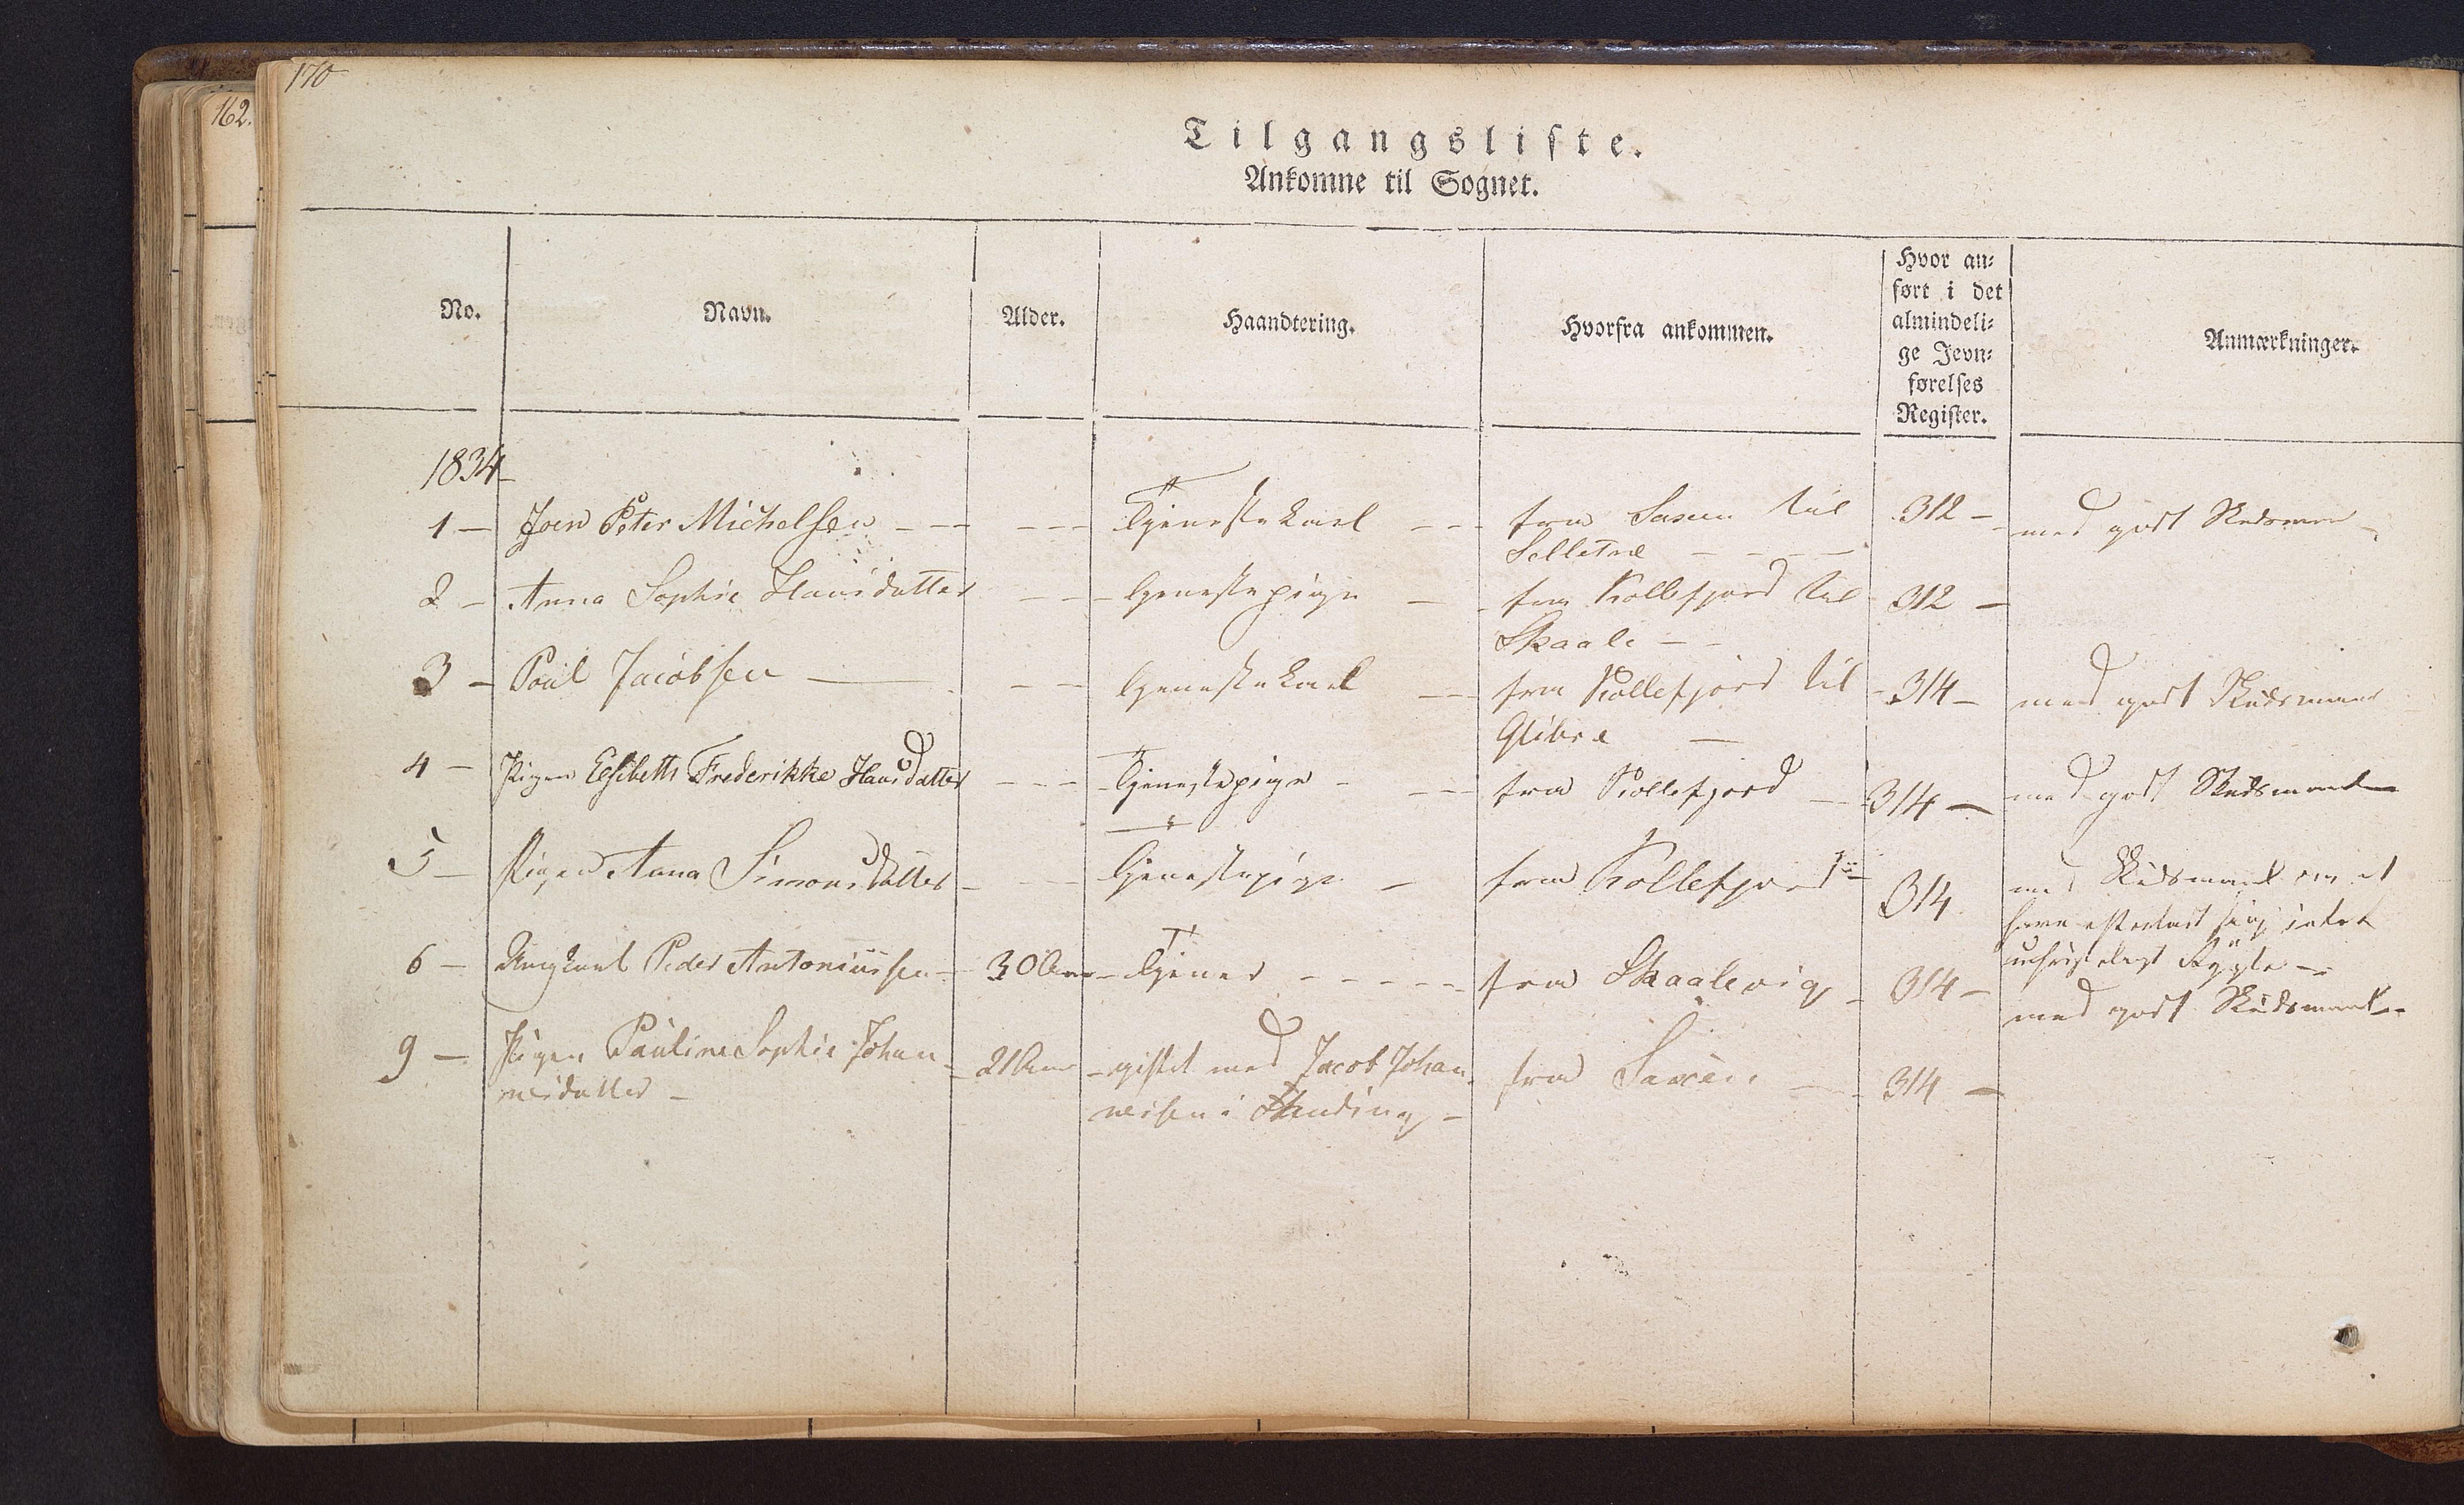 170
162.
Tilgangsliste.
Ankomne til Sognet.
No.
Navn.
Alder.
Haandtering.
Hvorfra ankommen.
Hvor an-
ført i det
almindeli-
ge Jevn-
førelses
Register.
Anmærkninger.
1834
1 — Joen Peter Michelsen - - - - - - Tjenestekarl - - - fra Saxen til 312 - med godt Skudsmaal -
Selletræ - - - -
2 - Anna Sophie Hansdatter - - - Tjenestepige - - fra Kollefjord til 312 -
Skaale - -
3 - Poul Jacobsen - - - Tjenestekarl - - fra Kollefjord til - 314 - med godt Skudsmaal
Glibre -
4 - Pigen Elsibeth Frederikke Hansdatter - - - Tjenestepige - - - fra Kollefjord - 314 - med godt Skudsmaal -
5 - Pigen Anna Simonsdatter - - - Tjenestepige - fra Kollefjord - 314 med Skudsmaal om at
have efterladt sig intet
uchristeligt Rygte -
6 - Ungkarl Peder Antoniussen - 30 Aar - Tjener - - - - - fra Skaalevig - 314 - med godt Skudsmaal -
9 - Pigen Pauline Sophie Johan - 21 Aar - giftet med Jacob Johan fra Saxen - 314 -
nesdatter - nesen i Haldervig -